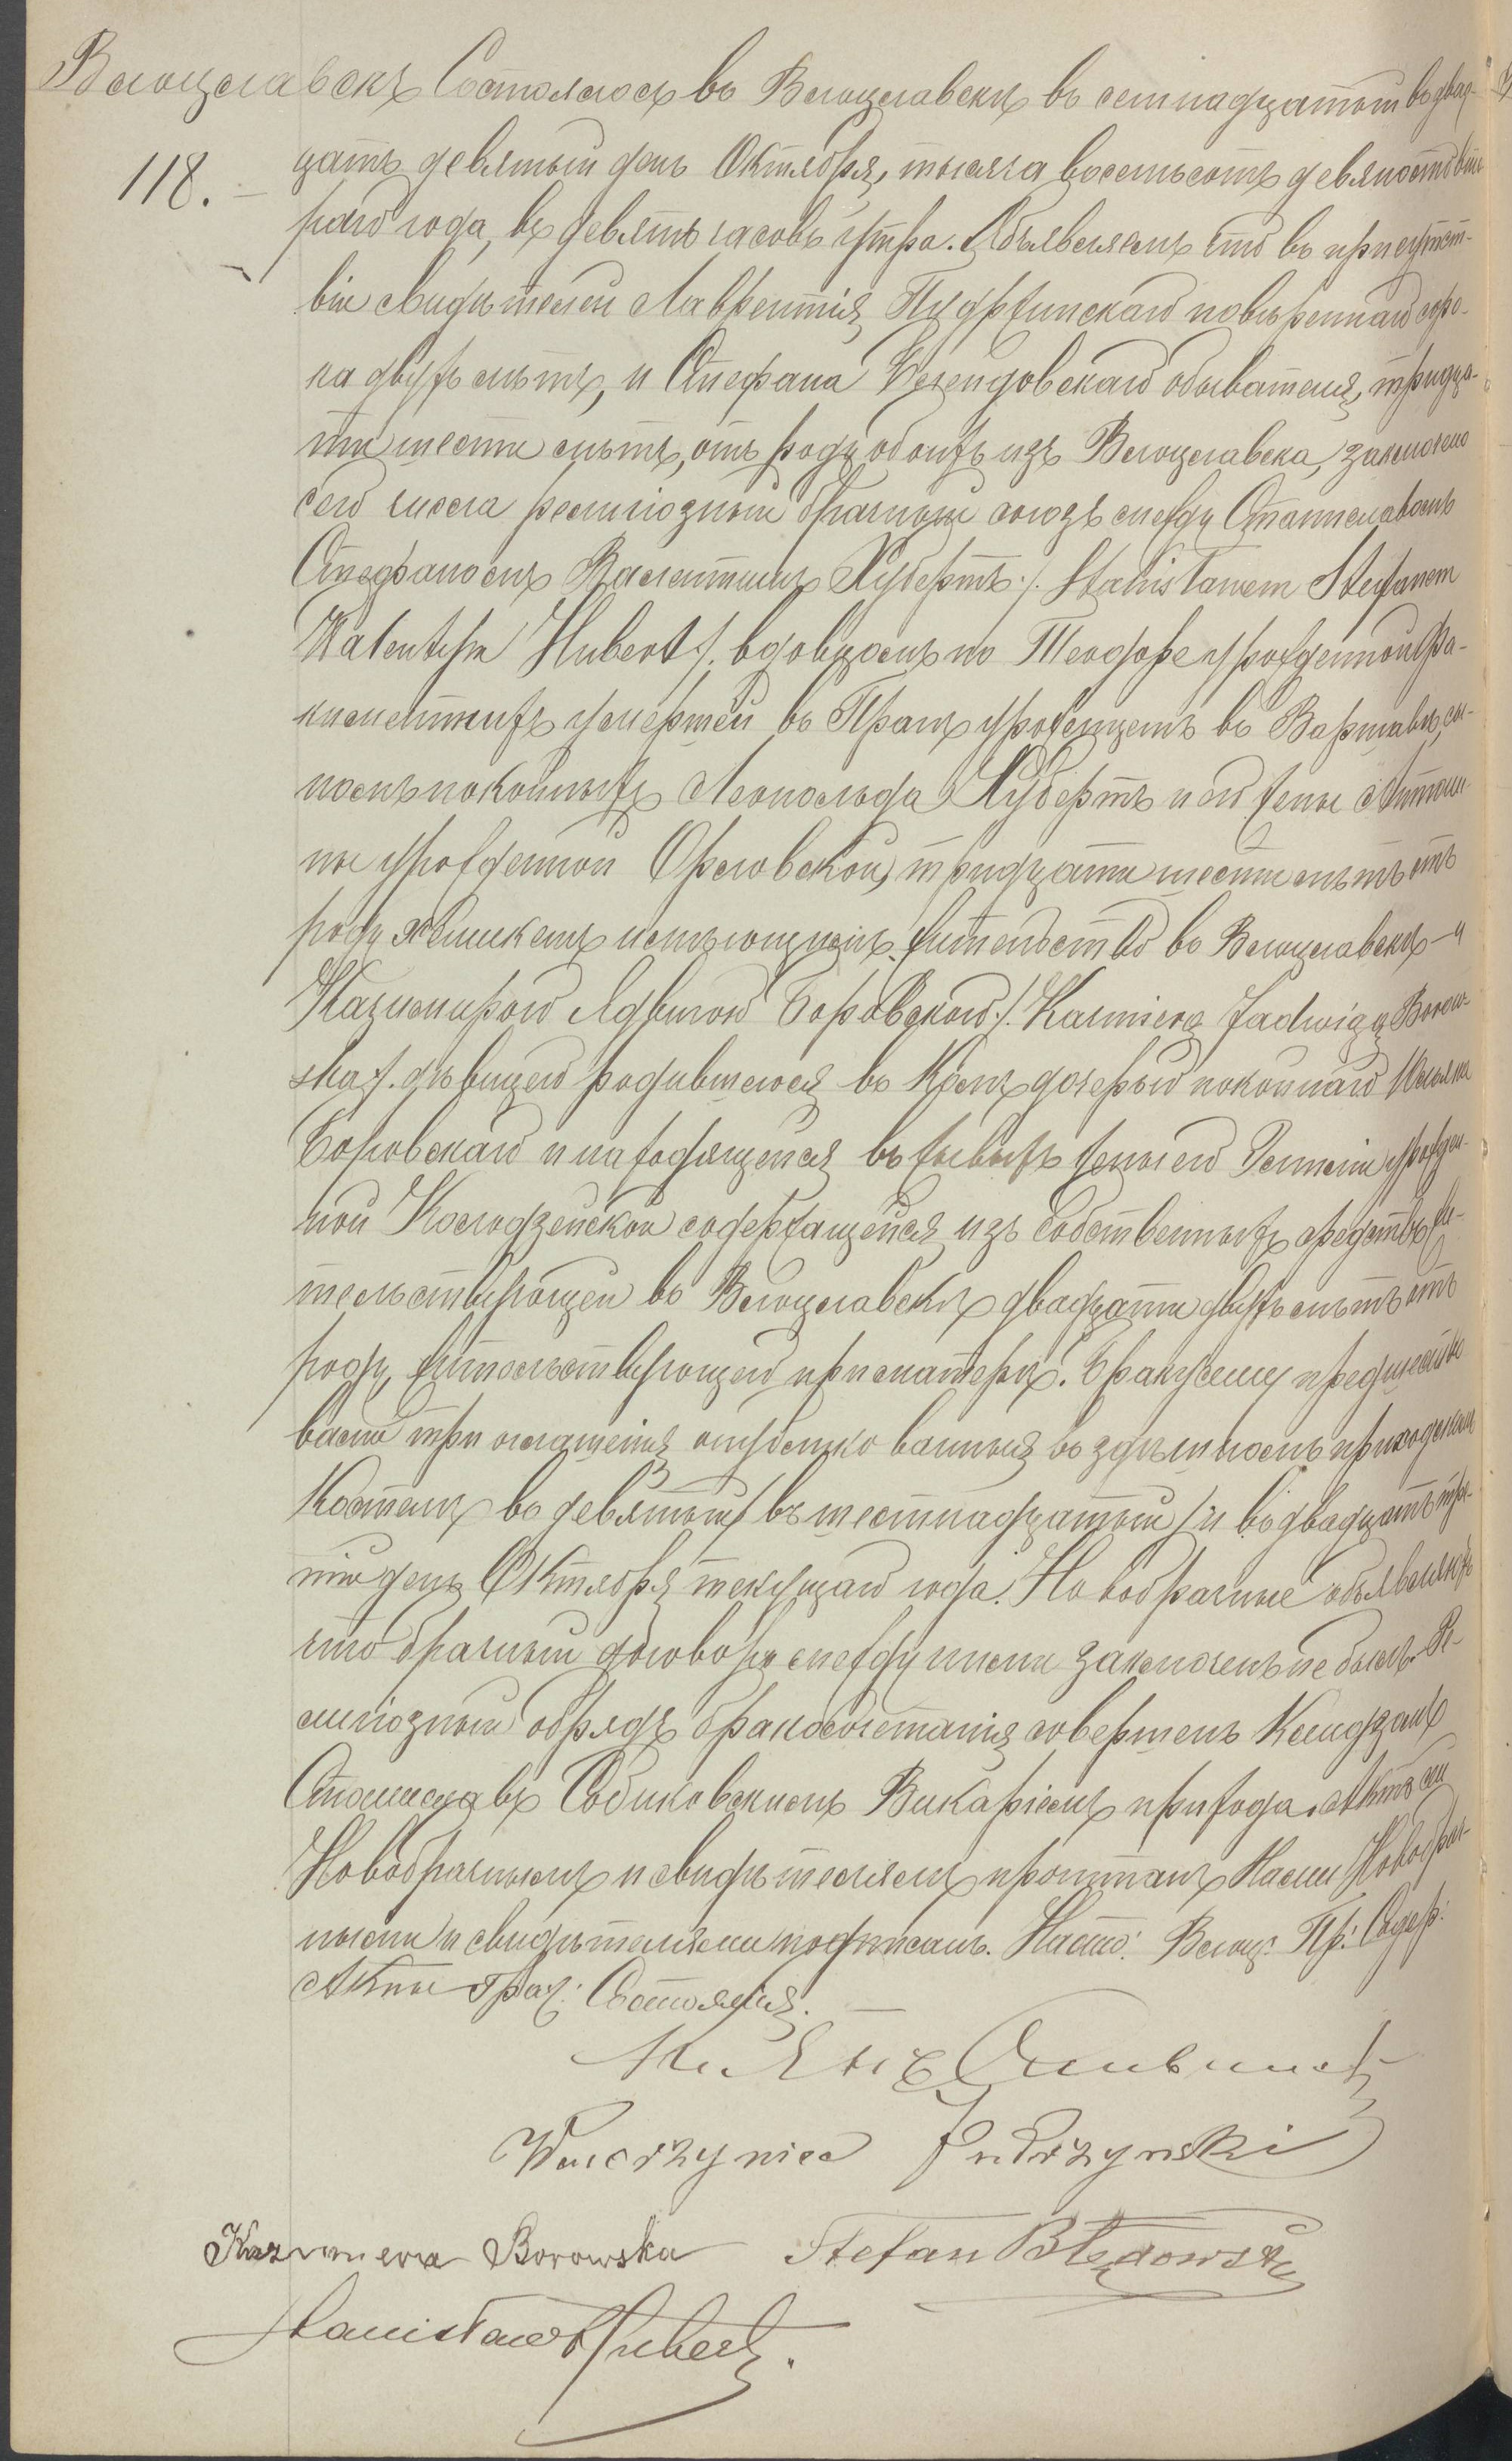 Влоцлавскъ Состоялось въ Влоцлавскѣ въ семнадцатый въ двад-
118.- цать девятый день Октября, тысяча восемьсотъ девяносто вто-
раго года, въ девять часовъ утра. Объявляемъ что въ присутст-
віи свидѣтелей Лаврентія повѣреннаго соро-
ка двухъ лѣтъ, и Стефана обывателя, тридца-
ти шести лѣтъ, отъ роду обоихъ изъ Влоцлавска, заключено
сего числа религіозный брачный союзъ между Станиславомъ
Стефаномъ Валентимъ Хубертъ ./. Stanisławem Stefanem
Walentym Hubert ./. вдовцомъ по Теодорѣ урожденной
умершей въ урожденцемъ въ Варшавѣ, сы-
номъ покойныхъ Леопольда Хубертъ и его жены Антони-
ны урожденной Орловской, тридцати шести лѣтъ отъ
роду имѣющимъ жительство въ Влоцлавскѣ - и
Казимирою Ядвигою Боровскою ./. Kazimierą Jadwigą Borow-
ską ./. дѣвицею родившеюся въ дочерью покойнаго
Боровскаго и находящейся въ живыхъ жены его урожден-
ной Колодзейской содержащейся изъ собственныхъ средствъ жи-
тельствующей въ Влоцлавскѣ двадцати двухъ лѣтъ отъ
роду, жительствующею при матери. Браку сему предшество-
вали три оглашенія опубликованныя въ здѣшномъ приходскомъ
Костелѣ въ девятый / въ шестнадцатый / и въ двадцать тре-
тій день Октября текущаго года. Новобрачные объявляютъ
что брачный договоръ между ними заключенъ не былъ. Ре-
лигіозный обрядъ бракосочетанія совершенъ Ксендзомъ
Станиславъ Викаріемъ прихода. Актъ сей
Новобрачнымъ и свидѣтелямъ прочитанъ Нами Новобрач-
ными и свидѣтелями подписанъ. Наст: Влоц: Пр: Содер:
Акты Граж: Состоянія.
Wawrzyniec
Kazimiera Borowska Stefan Błędowski
Stanisław Hubert.